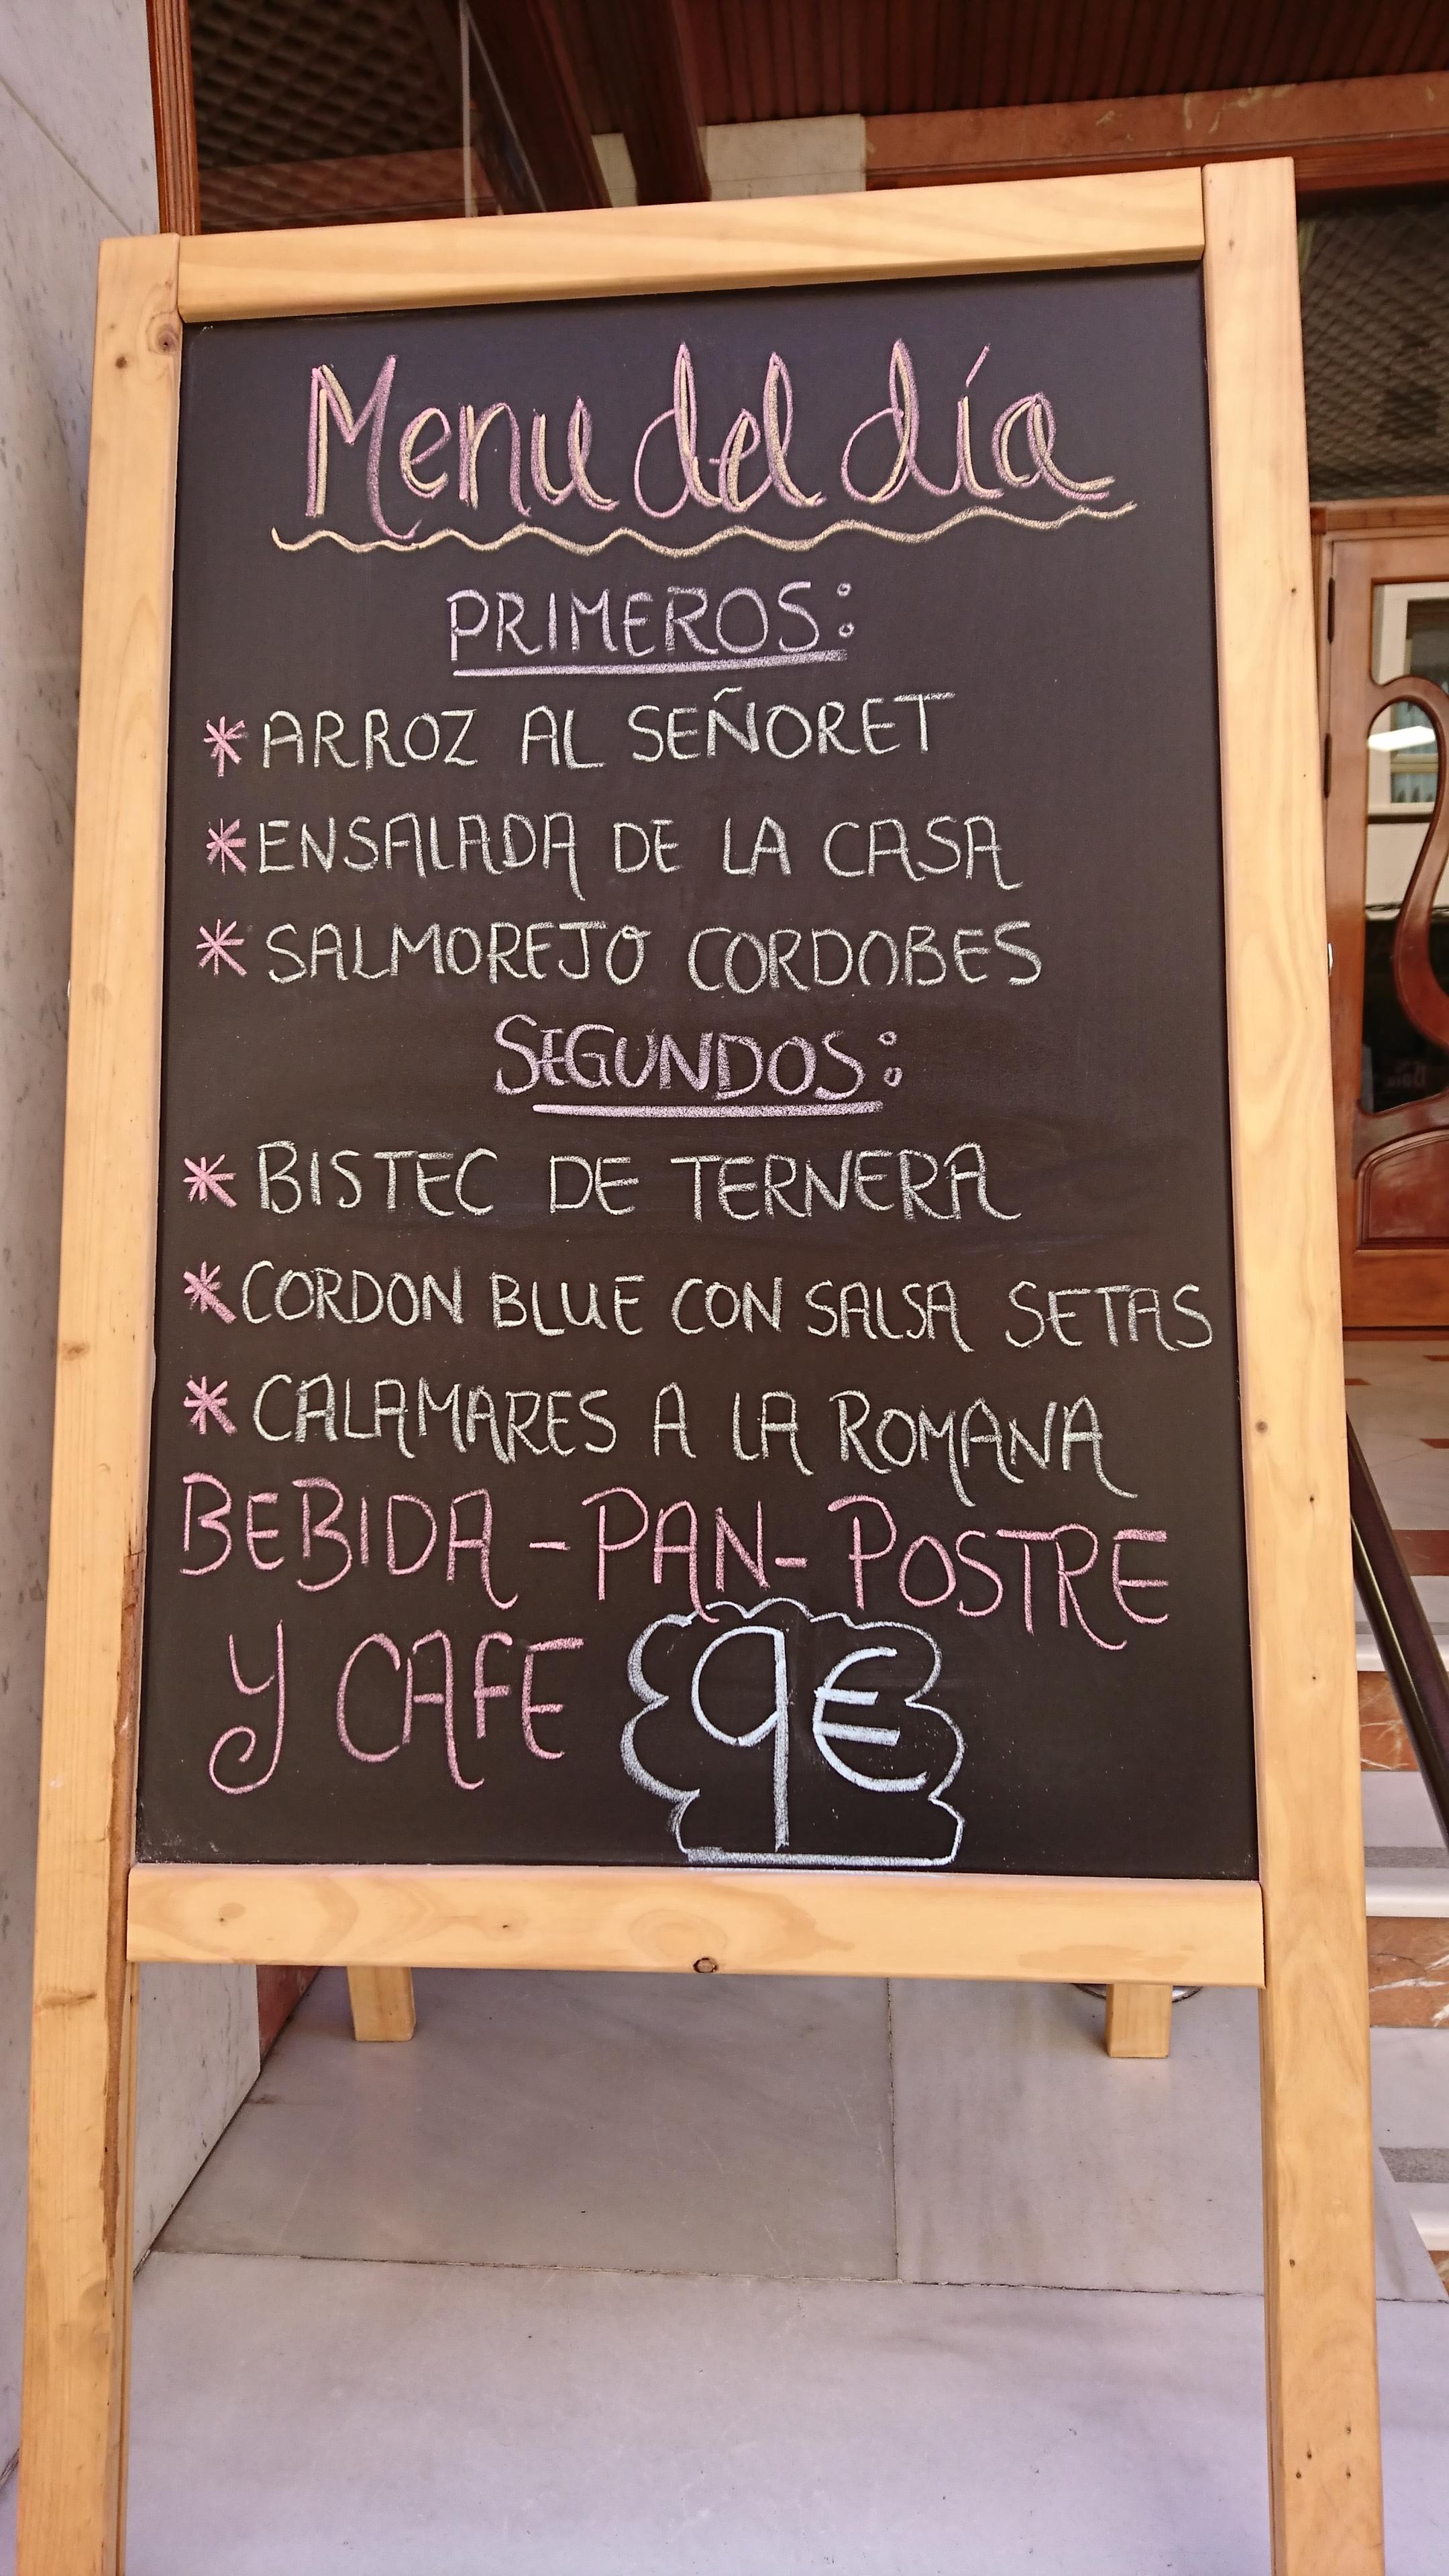 Menu del día
PRIMEROS:
* ARROZ AL SEÑORET
* ENSALADA DE LA CASA
* SALMOREJO CORDOBES
SEGUNDOS:
* BISTEC DE TERNERA
* CORDON BLUE CON SALSA SETAS
* CALAMARES A LA ROMANA
BEBIDA - PAN - POSTRE
Y CAFE 9€